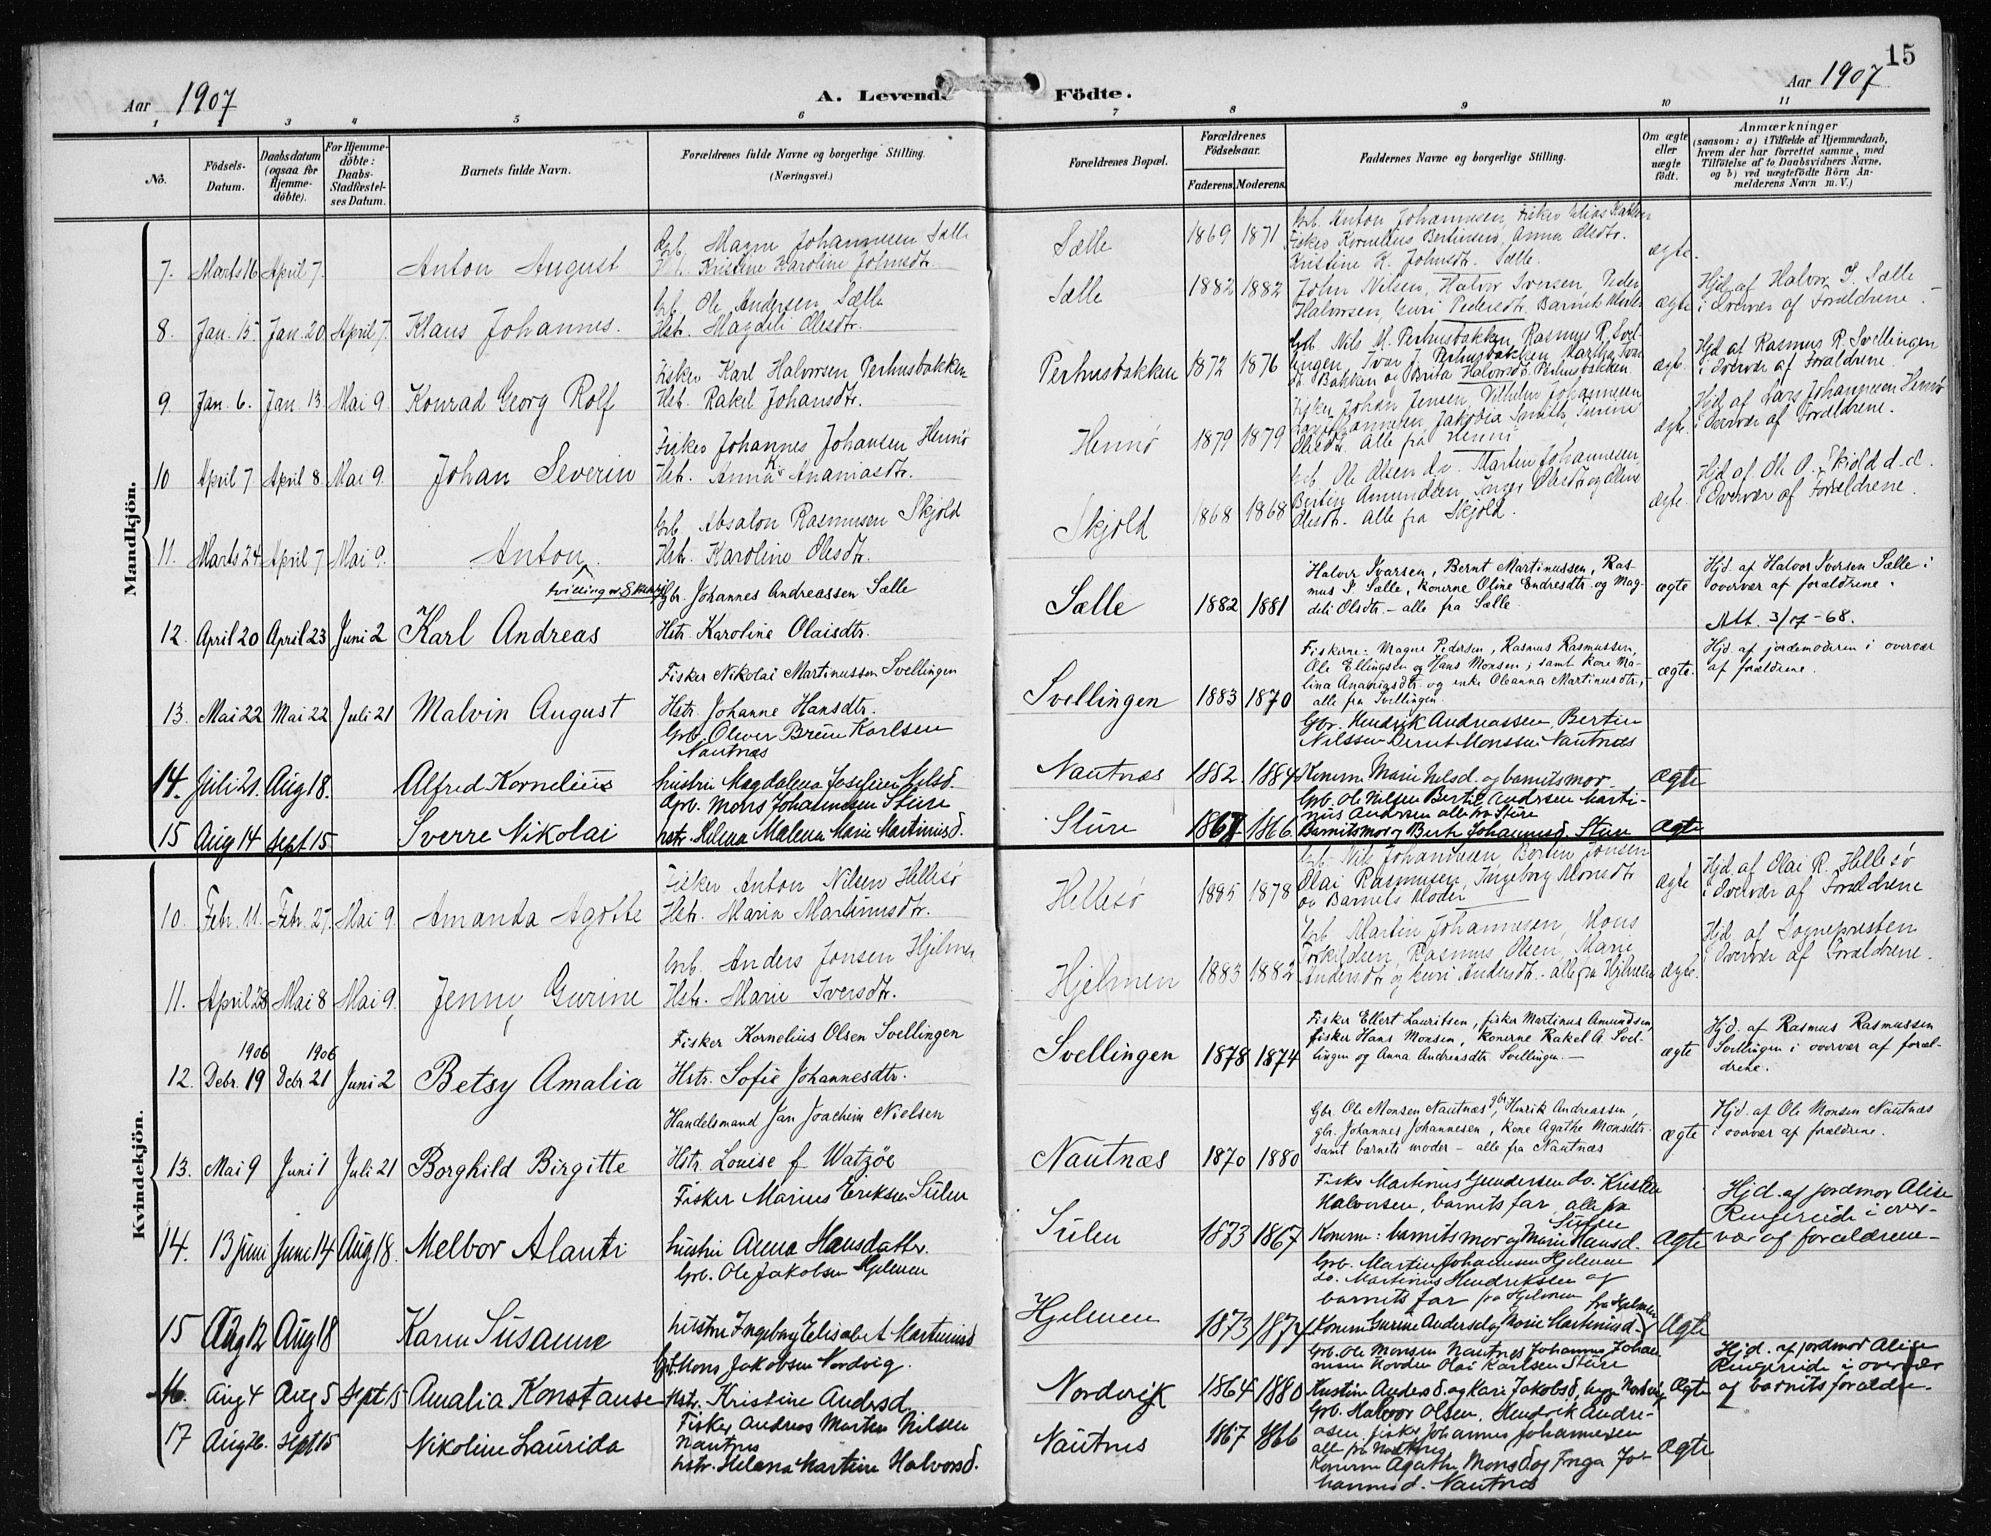 15
Aar 1907
A. Levende Födte.
Aar 1907
1 2 3 4 5 6 7 8 9 10 11
No.
Födsels-Datum.
Daabsdatum (ogsaa for Hjemme-döbte).
For Hjemme-döbte: Daabs-Stadfæstel-ses Datum.
Barnets fulde Navn.
Forældrenes fulde Navne og borgerlige Stilling. (Næringsvei.)
Forældrenes Bopæl.
Forældrenes Födselsaar.
Faderens. Moderens.
Faddernes Navne og borgerlige Stilling.
Om ægte eller uægte födt.
Anmærkninger (saasom: a) i Tilfælde af Hjemmedaab, hvem der har forrettet samme, med Tilföielse af to Daabsvidners Navne, og b) ved uægtefödte Börn An-melderens Navn m. V.)
Mandkjön.
7. Marts 16 April 7. Anton August
Grb. Magne Johannesen Sælle
Kristine Karoline Johnsdtr.
Sælle 1869 1871
Grb. Anton Johannesen, Fisker Elias
Fisker Kornelius Bertinsen, Anna Olesdtr.
Kristine K. Johnsdt. Sælle.
ægte.
8. Jan. 15. Jan. 20 April 7. Klaus Johannes.
Grb. Ole Andersen, Sælle
Hstr. Magdeli Olesdtr.
Sælle 1882 1882
John Nilsen, Halvor Iversen, Peder
Halvorsen, Guri Pedersdtr. Barnets Moder
ægte
Hjd. af Halvor I. Sælle
i Overvær af Forældrene.
9. Jan. 6. Jan. 13 Mai 9 Konrad Georg Rolf
Fisker Karl Halvorsen Perhusbakken
Hst. Rakel Johansdtr.
Perhusbakken 1872 1876
Grb. Nils M. Perhusbakken, Rasmus R. Svel-
lingen, Ivar J. Perhusbakken, Martha
Bakken og Brita Halvorsdt. Perhusbakken
ægte
Hjd af Rasmus R. Svellingen
i Overvær af Forældrene.
10 April 7 April 8 Mai 9. Johan Severin
Fisker Johannes Johansen Hennø
Hst. Anna K. Ananiasdtr.
Hennø 1879 1879
Fisker Johan Jensen, Vilhelm Johannesen
Jakobia Smith,
Olesdtr. Alle fra Henni
ægte.
Hjd af Lars Johannesen Hennø
i Overvær af Forældrene.
11. Marts 24 April 7 Mai 9. Anton
Grb. Absalon Rasmusen Skjold
Hst. Karoline Olesdtr.
Skjold 1868 1868
Grb. Ole Olsen do. Martin Johannesen,
Bertin Amundsen, Inger Olesdtr og Oline
Olesdtr. Alle fra Skjold.
ægte.
Hjd af Ole O. Skjold d.d.
i Overvær af Forældrene.
12. April 20 April 23 Juni 2 Karl Andreas
Gbr. Johannes Andreassen Sælle
Hstr. Karoline Olaisdtr.
Sælle 1882 1881
Halvor Ivarsen, Bernt Martinussen, Ras-
mus I. Sælle, konerne Oline Endresdtr. og Mag-
deli Olsdtr. – alle fra Sælle.
ægte
Hjd. af Halvor Iversen Sælle i
overvær af forældrene.
Att. 3/17-68.
13. Mai 22 Mai 22 Juli 21 Malvin August
Fisker Nikolai Martinussen Svellingen
Hstr. Johanne Hansdtr.
Svellingen 1883 1870
Fiskerne: Magne Pedersen, Rasmus Rasmussen,
Ole Ellingsen og Hans Monsen; samt kone Ma-
lina Ananiasdtr. og enke Oleanna Martinusdtr., –
alle fra Svellingen
ægte.
Hjd. af jordemoderen i overvær
af forældrene.
14. Juli 21. Aug 18. Alfred Kornelius
Grb. Oliver Breiin Karlsen
Nautnæs
hustru Magdalena Josefine Nilsd.
Nautnæs 1882. 1884
Gbr. Hendrik Andreassen, Bertin
Nilssen Bernt Monssen Nautnæs
Konerne Marie Nilsd. og barnets mor
Ægte
15 Aug 14 Sept 15. Sverre Nikolai
Grb. Mons Johannesen Sture
hstr. Helena Malena Marie Martinusd.
Sture 1867 1866.
Grb. Ole Nilsen Bertil Andersen Marti-
nus Andersen alle fra Sture
Barnets mor og Berte Johannesd. Sture
Ægte
Kvindekjön.
10. Febr. 11. Febr. 27. Mai 9. Amanda Agotte
Fisker Anton Nilsen Hellesø
Hstr. Maria Martinusdtr.
Hellesø 1885 1878
Grb. Nils Johannesen, Bertin Jonsen
Olai Rasmusen, Ingeborg Monsdtr
og Barnets Moder
ægte
Hjd. af Olai R. Hellesø
i Overvær af Forældrene
11. April 28 Mai 8 Mai 9. Jenny Gurine
Grb. Anders Jonsen Hjelmen
Hstr. Marie Iversdtr.
Hjelmen 1883 1882
Grb. Martin Johannesen, Mons
Torkildsen, Rasmus Olsen, Marie
Andersdtr og Guri Andersdt. – alle fra Hjelmen
ægte.
Hjd af Sognepresten
i Overvær af Forældrene.
12. 1906 Debr. 19 1906 Debr 21 Juni 2 Betsy Amalia
Fisker Kornelius Olsen Svellingen
Hstr. Sofie Johannesdtr.
Svellingen 1878 1874
Fisker Ellert Lauritsen, fisker Martinus Amundsen,
fisker Hans Monsen, konerne Rakel A. Svel-
lingen og Anna Andreasdtr. Svellingen. –
ægte
Hjd. af Rasmus Rasmussen
Svellingen i overvær af foræl-
drene.
13. Mai 9 Juni 1 Juli 21 Borghild Birgitte
Handelsmand Jan Joachim Nielsen
Hstr. Louise f. Watzøe
Nautnæs 1870 1880
Gbr. Ole Monsen Nautnæs, gbr. Henrik Andreassen,
gbr. Johannes Johannesen, kone Agathe Monsdtr.
samt barnets moder – alle fra Nautnæs
ægte
Hjd. af Ole Monsen Nautnæs
i overvær af forældrene.
14. 13 juni June 14 Aug 18. Melbor Alanti
Fisker Marius Eriksen Sulen
hustru Anna Hansdatter.
Sulen 1873 1867
Fisker Martinus Gundersen do. Kristen
Halvorsen, barnets far, alle fra
Sulen
Konerne: barnets mor og Marie Hansd.
Ægte
Hjd. af jordmor Alise
Ringereide i over-
vær af forældrene –
15 Aug 12 Aug 18 Karen Susanne
Grb. Ole Jakobsen Hjelmen
hustru Ingeborg Elisabet Martinusd
Hjelmen 1873 1874
Grb. Martin Johannesen Hjelmen
do. Martinus Hendriksen og
barnets far fra Hjelmen
Konerne Gurine Andersd og Marie Martinusd – fra Hjelmen
Ægte
16. Aug 4 Aug 5 Sept 15 Amalia Konstanse
Gbr. Mons Jakobsen Nordvig.
Hstr. Kristine Andersd.
Nordvik 1864 1880
Grb. Ole Monsen Nautnes Johannes Johan-
nesen Olai Karlsen Sture
Kristine Andersd. og Kari Jakobsd, begge Nordvig
Ægte
Hjd. af jordmor Alise
Ringereide i overvær
af barnets forældre.
17 Aug 26. Sept 15 Nikoline Laurida
Fisker Andreas Martin Nilsen
Nautnes
hstr. Helena Martine Halvorsd.
Nautnes 1867 1866
Grb. Halvor Olsen. Hendrik Andre-
asen. fisker Johannes Johannesen
alle fra Nautnes
Konerne Agathe Monsd. og Inga Jo-
hannesd. Nautnes
Ægte